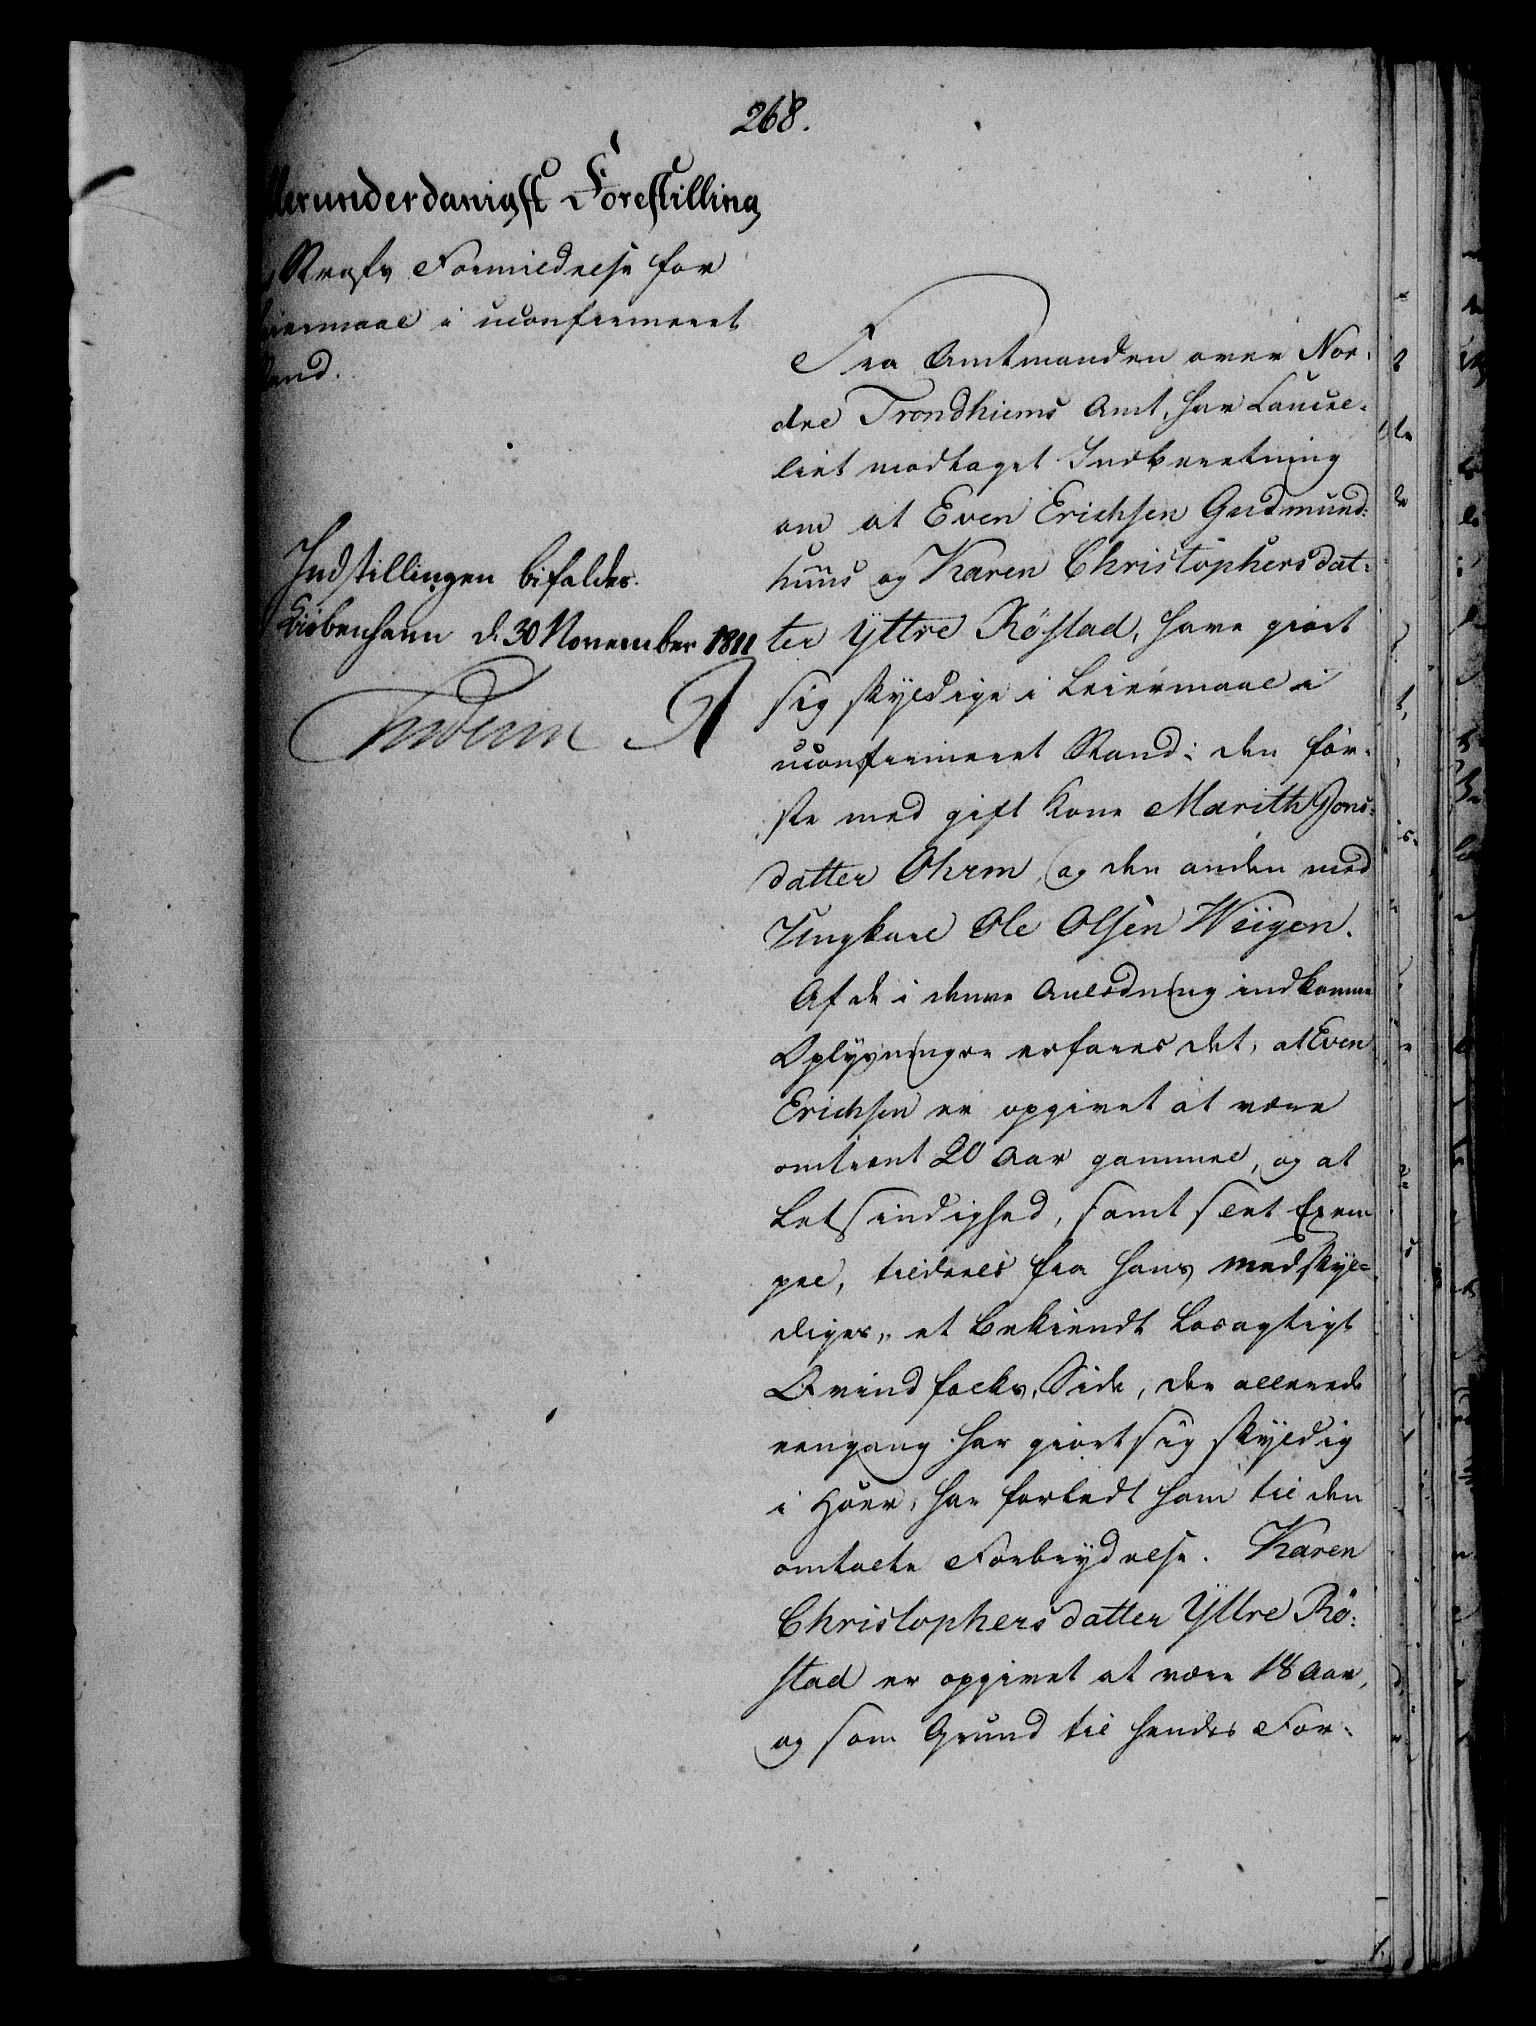 268.
Allerunderdanigst Forestilling
Straffs Formildelse for
Leiermaal i uconfirmeret
Stand.
Indstillingen bifaldes.
Kiöbenhavn d. 30 November 1811
Frederik R
Fra Amtmanden over Nor-
dre Trondhiems Amt, har Cancel-
liet modtaget Indberetning
om at Even Erichsen Gudmund-
huus og Karen Christophersdat-
ter Yttre Röstad, have giort
sig skyldige i Leiermaal i
uconfirmeret Stand: den för-
ste med gift Kone Marith Jons-
datter Ohrm, og den anden med
Ungkarl Ole Olsen Wiigen.
Af de i denne Anledning indkomne
Oplysninger erfares det, at Even
Erichsen er opgivet at være
omtrent 20 Aar gammel, og at
Letsindighed, samt slet Exem-
pel, tildeels fra hans medskyl-
diges, et bekiendt losagtigt
Qvindfolks, Side, der allerede
eengang har giort sig skyldig
i Hoer, har forledt ham til den
omtalte Forbrydelse. Karen
Christophersdatter Yttre Rö-
stad er opgivet at være 18 Aar,
og som Grund til hendes For-